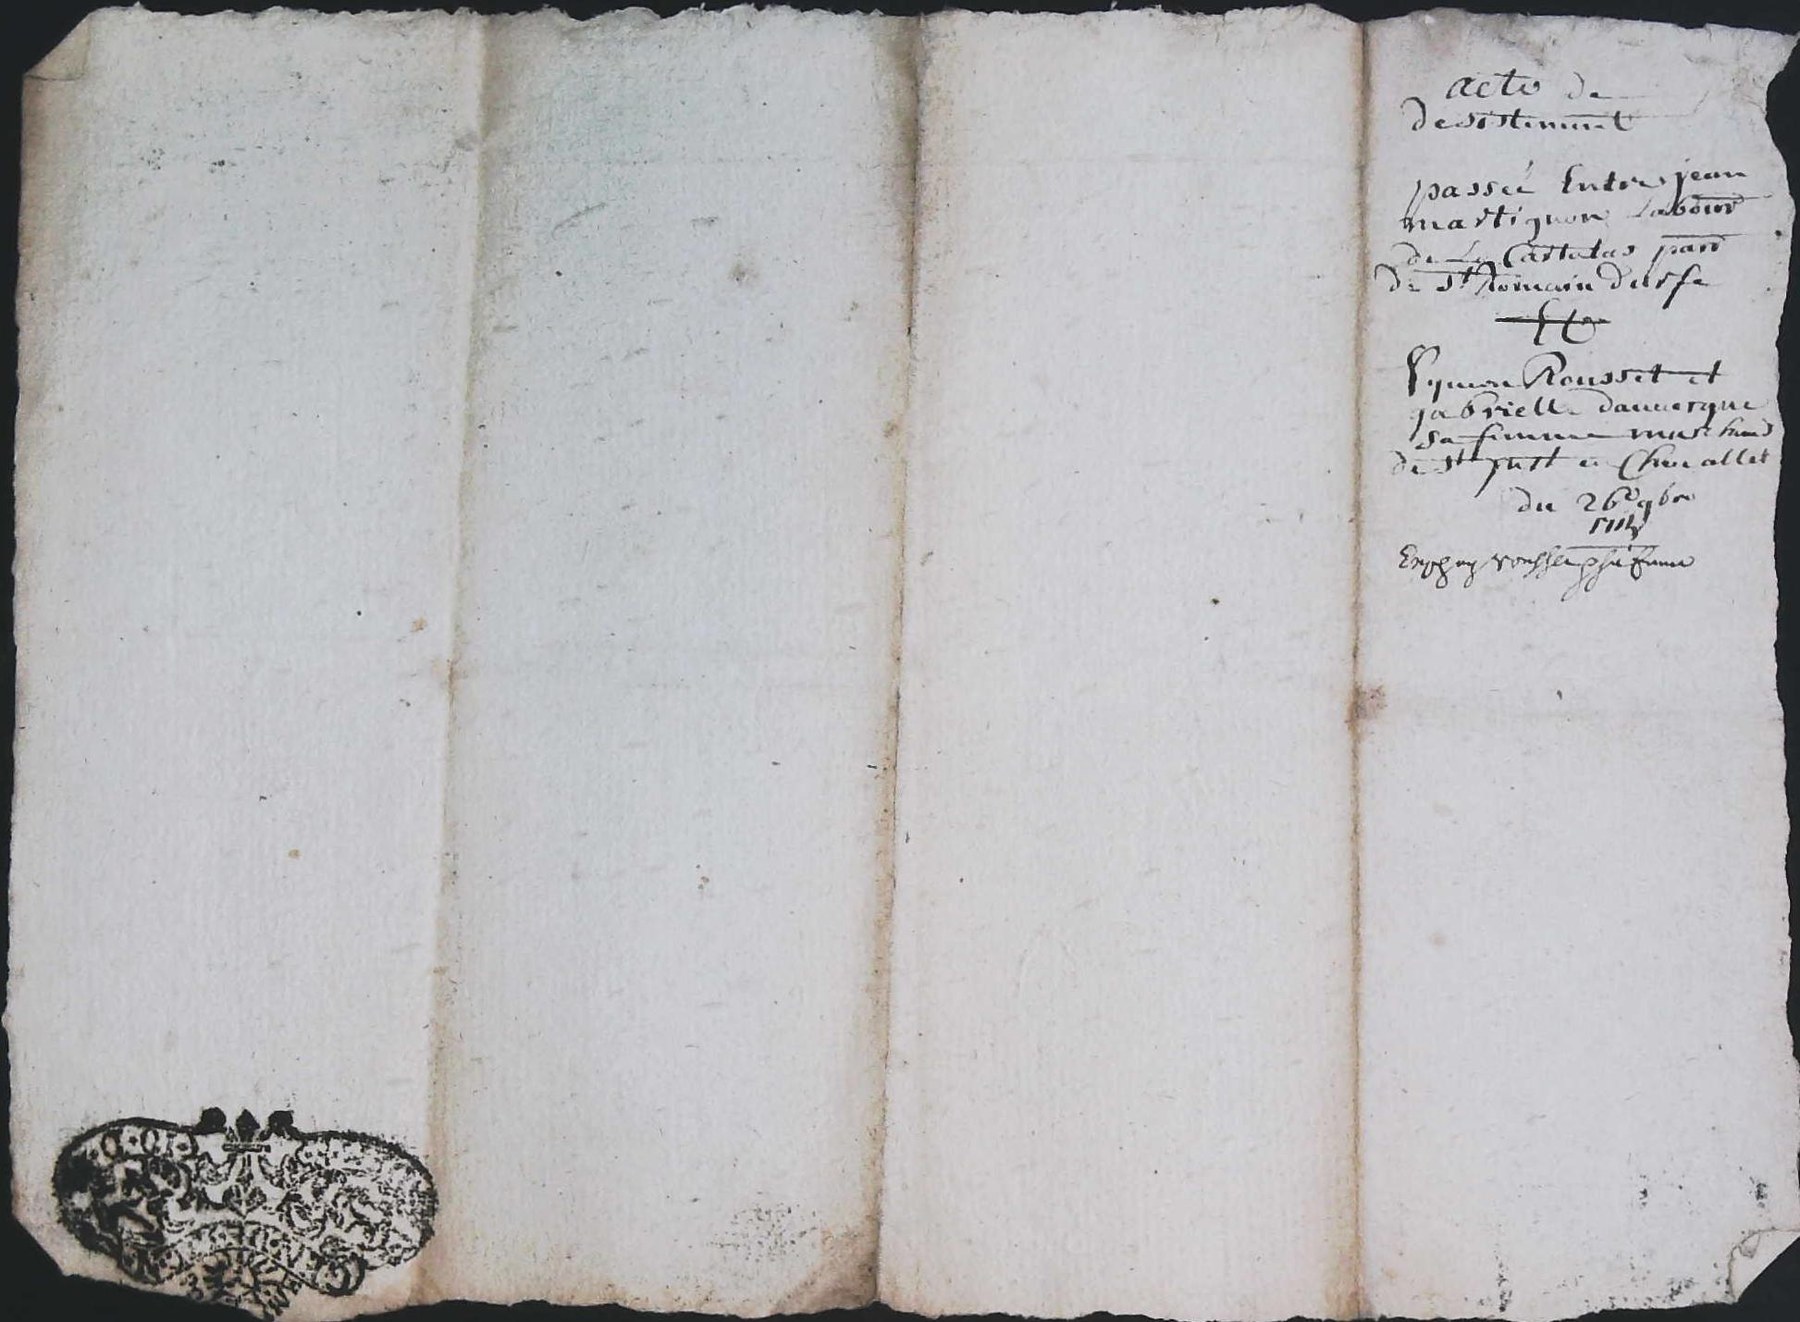 acte de
desistement
passée Entre jean
martignon Labour
de La Castalas parr
de st Romain Durfe
Et
Rousset et
gabrielle dauuergne
sa femme marchand
de st just en Cheuallet
du 26e 9bre